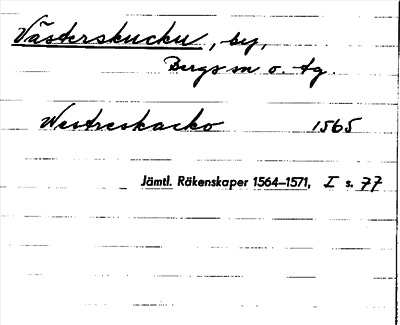 Västerskucku, by,
Bergs sn o. tg.
Westreskacko 1565
Jämtl. Räkenskaper 1564–1571, I s. 77